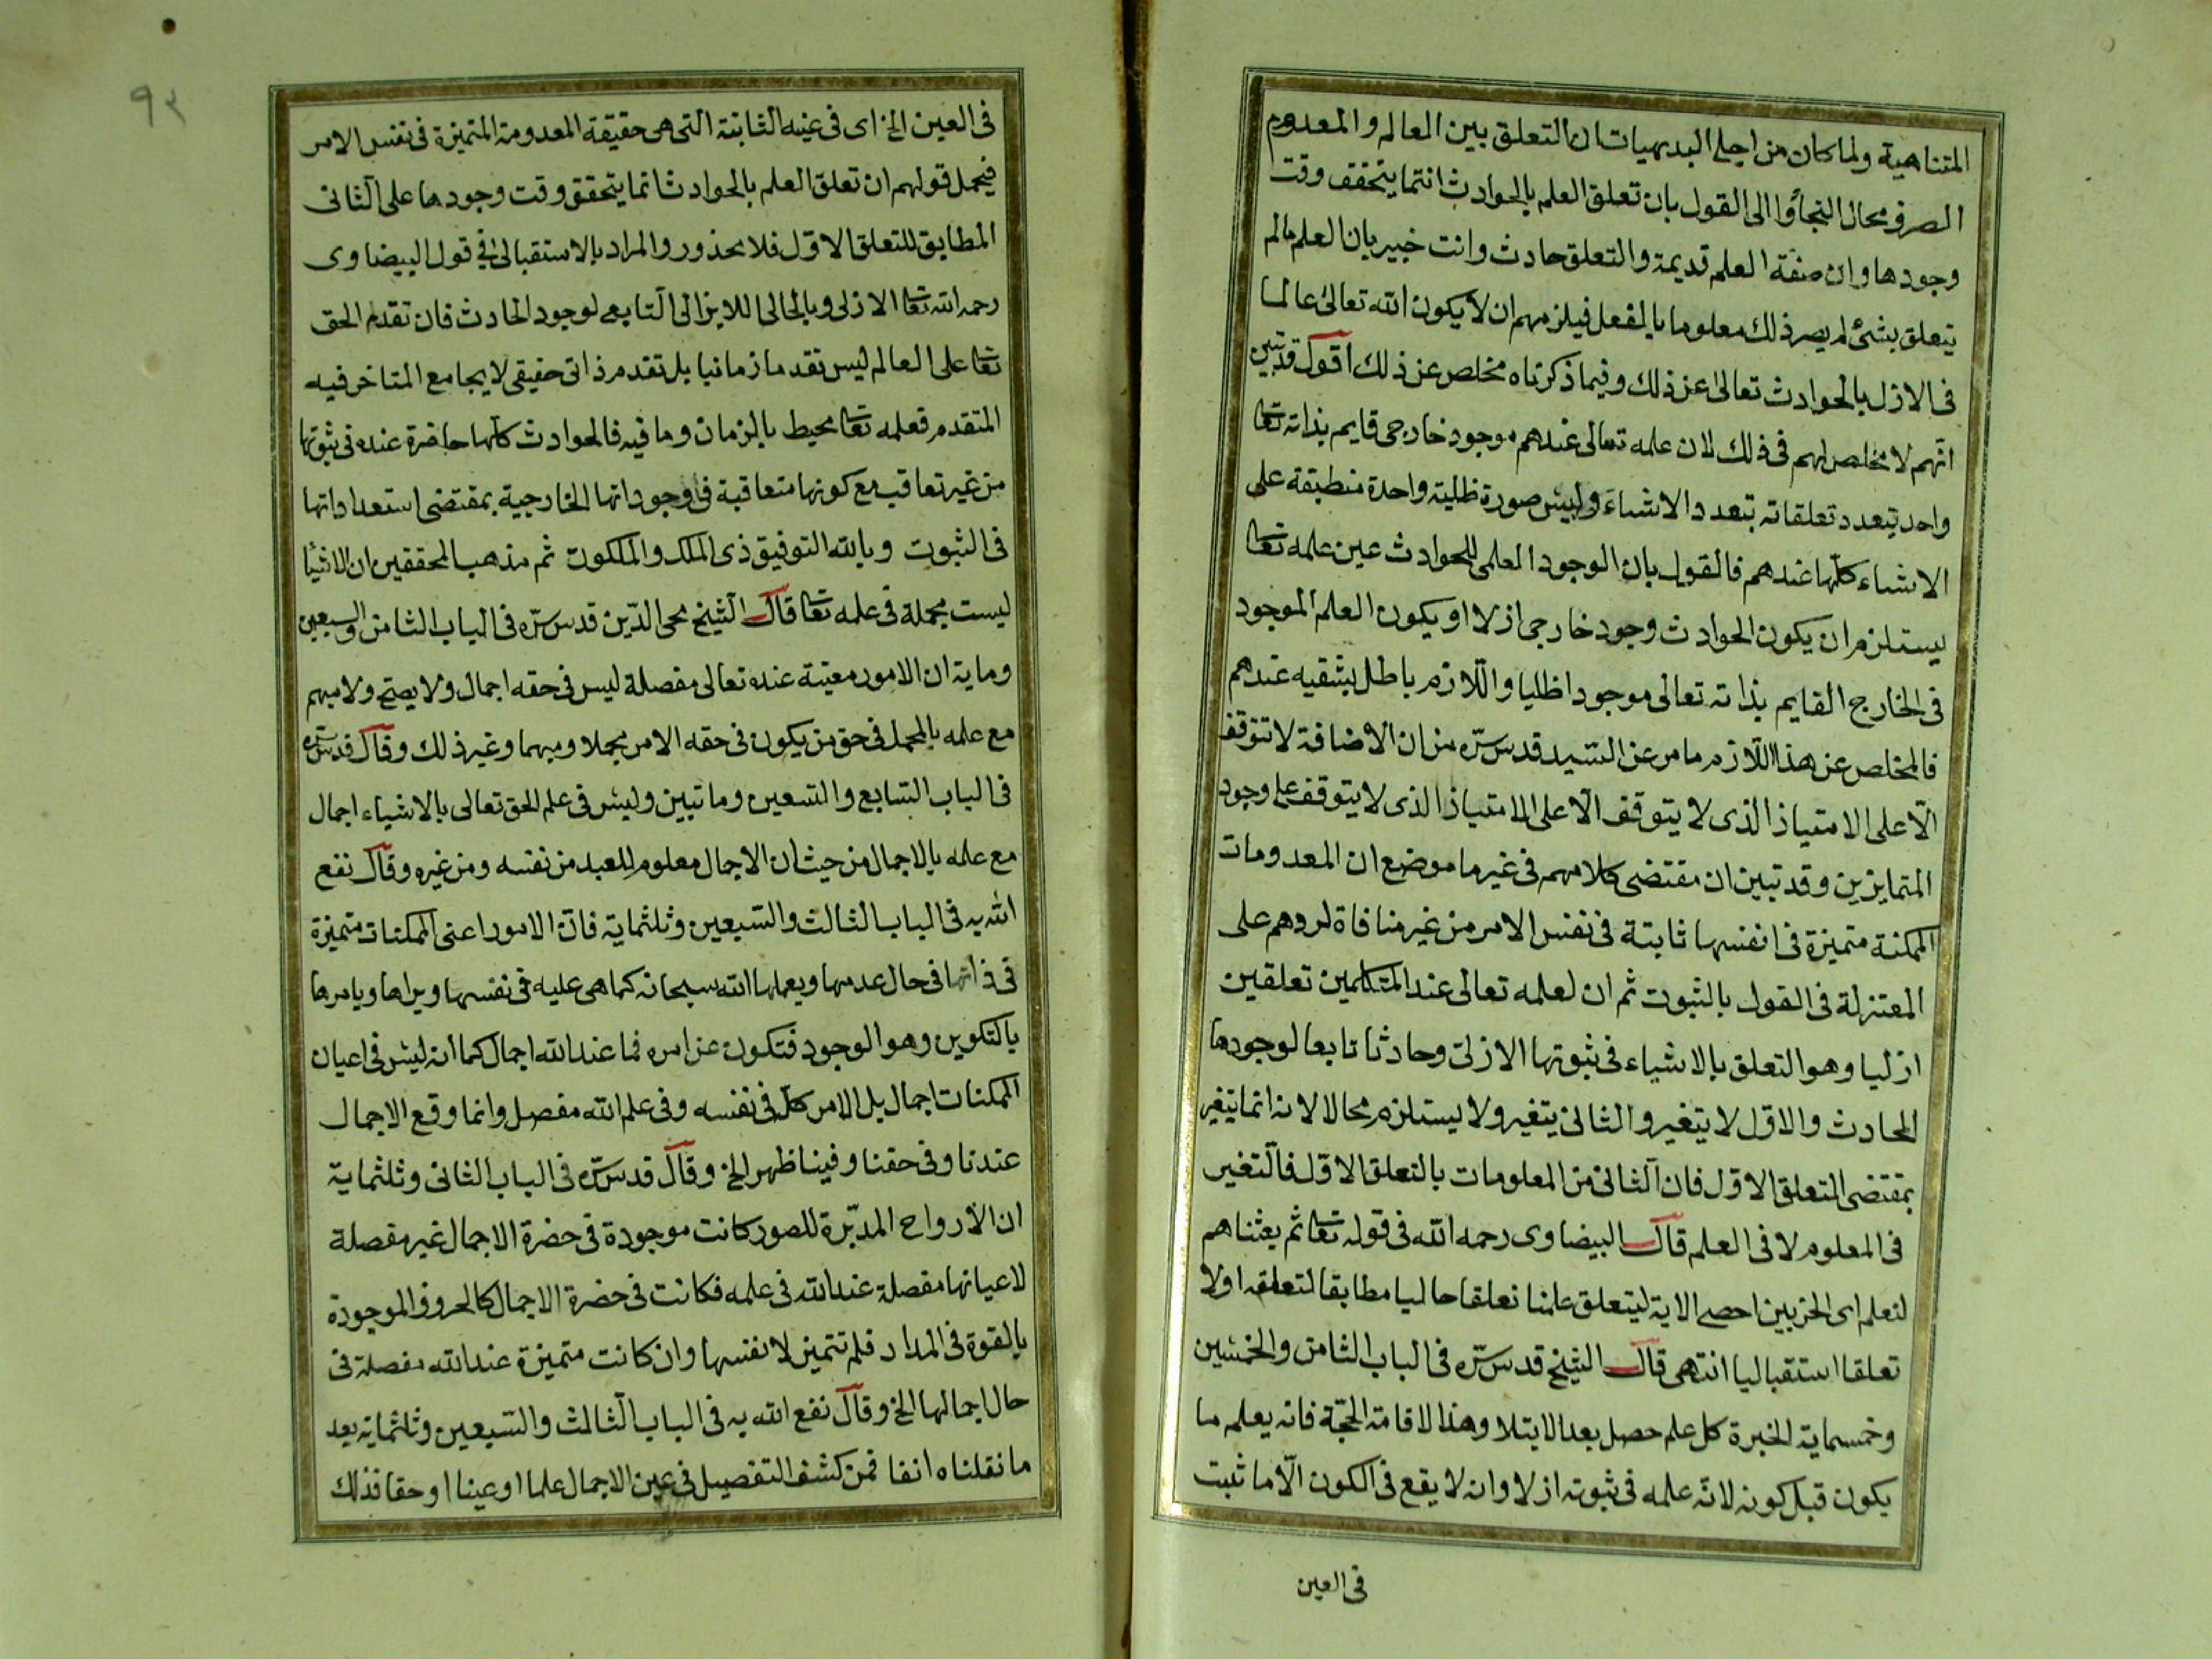 المتناهية ولما كان من اجلى البديهيات ان التعلق بين العالم والمعدوم
الصرف محال التجأوا الى القول بان تعلق العلم بالحوادث انما يتحقق وقت
وجودها وان صفة العلم قديمة والتعلق حادث وانت خبير بان العلم مالم
يتعلق بشئ لم يصر ذلك معلوما بالفعل فيلزمهم ان لا يكون الله تعالى عالما
فى الازل بالحوادث تعالى عن ذلك وفيما ذكرناه مخلص عن ذلك اقول قد تبين
انهم لا مخلص لهم فى ذلك لان علمه تعالى عندهم موجود خارجى قايم بذاته تعا
واحد يتعدد تعلقاته بتعدد الاشياء وليس صورة ظلية واحدة منطبقة على
الاشياء كلها عندهم فالقول بان الوجود العلمى للحوادث عين علمه تعا
يستلزم ان يكون الحوادث وجود خارجى ازلا او يكون العلم الموجود
فى الخارج القايم بذاته تعالى موجودا ظليا واللازم باطل بشقيه عندهم
فالمخلص عن هذا اللازم ما مر عن السيد قدس سره من ان الاضافة لا تتوقف
الا على الامتياز الذى لا يتوقف الا على الامتياز الذى لا يتوقف على وجود
المتمايزين وقد تبين ان مقتضى كلامهم فى غير ما موضع ان المعدومات
الممكنة متميزة فى انفسها ثابتة فى نفس الامر من غير منافاة لردهم على
المعتزلة فى القول بالثبوت ثم ان لعلمه تعالى عند المتكلمين تعلقين
ازليا وهو التعلق بالاشياء فى ثبوتها الازلى وحادثا تابعا لوجودها
الحادث والاول لا يتغير والثانى يتغير ولا يستلزم محالا لانه انما يتغير
بمقتضى التعلق الاول فان الثانى من المعلومات بالتعلق الاول فالتغير
فى المعلوم لا فى العلم قال البيضاوى رحمه الله فى قوله تعا ثم بعثناهم
لنعلم اى الحزبين احصى الاية ليتعلق علمنا تعلقا حاليا مطابقا لتعلقه اولا
تعلقا استقباليا انتهى قال الشيخ قدس سره فى الباب الثامن والخمسين
وخمسماية الخبرة كل علم حصل بعد الابتلا وهذا لاقامة الحجة فانه يعلم ما
يكون قبل كونه لانه علمه فى ثبوته ازلا وانه لا يقع فى الكون الا ما ثبت
فى العين
٩٢
فى العين الخ اى فى عينه الثابتة التى هى حقيقة المعدومة المتميزة فى نفس الامر
فيحمل قولهم ان تعلق العلم بالحوادث انما يتحقق وقت وجودها على الثانى
المطابق للتعلق الاول فلا محذور والمراد بالاستقبالى فى قول البيضاوى
رحمه الله تعا الازلى وبالحالى اللايزالى التابع لوجود الحادث فان تقدم الحق
تعا على العالم ليس تقدما زمانيا بل تقدم ذاتى حقيقى لا يجامع المتاخر فيه
المتقدم فعلمه تعا محيط بالزمان وما فيه فالحوادث كلها حاضرة عنده فى ثبوتها
من غير تعاقب مع كونها متعاقبة فى وجوداتها الخارجية بمقتضى استعداداتها
فى الثبوت وبالله التوفيق ذى الملك والملكوت ثم مذهب المحققين ان الاشيا
ليست مجملة فى علمه تعا قال الشيخ محى الدين قدس سره فى الباب الثامن والسبعين
وماية ان الامور معينة عنده تعالى مفصلة ليس فى حقه اجمال ولا يصح ولا مبهم
مع علمه بالمجمل فى حق من يكون فى حقه الامر مجملا ومبهما وغير ذلك وقال قدس سره
فى الباب السابع والتسعين وماتيين وليس فى علم الحق تعالى بالاشياء اجمال
مع علمه بالاجمال من حيث ان الاجمال معلوم للعبد من نفسه ومن غيره وقال نفع
الله به فى الباب الثالث والسبعين وثلثماية فان الامور اعنى الممكنات متميزة
فى ذاتها فى حال عدمها ويعلمها الله سبحانه كما هى عليه فى نفسها ويراها ويامرها
بالتكوين وهو الوجود فتكون عن امره فما عند الله اجمال كما انه ليس فى اعيان
الممكنات اجمال بل الامر كله فى نفسه وفى علم الله مفصل وانما وقع الاجمال
عندنا وفى حقنا وفينا ظهر الخ وقال قدس سره فى الباب الثانى وثلثماية
ان الارواح المدبرة للصور كانت موجودة فى حضرة الاجمال غير مفصلة
لاعيانها مفصلة عند الله فى علمه فكانت فى حضرة الاجمال كالحروف الموجودة
بالقوة فى المداد فلم تتميز لانفسها وان كانت متميزة عند الله مفصلة فى
حال اجمالها الخ وقال نفع الله به فى الباب الثالث والسبعين وثلثماية بعد
ما نقلناه انفا فمن كشف التفصيل فى عين الاجمال علما او عينا او حقا فذلك